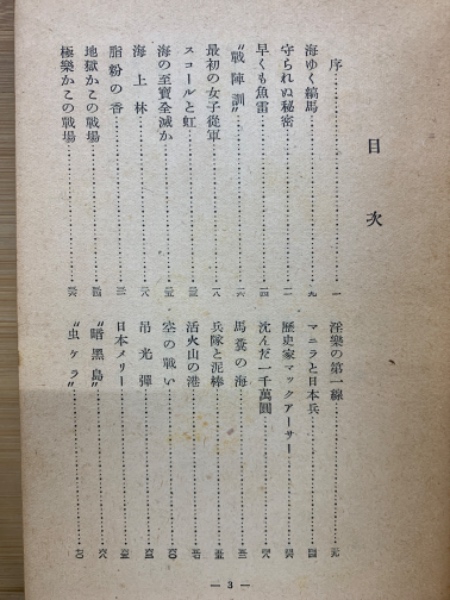 目次
序…………一
海ゆく縞馬…………九
守られぬ秘密…………一一
早くも魚雷…………一四
"戰陣訓"…………一六
最初の女子從軍…………一八
スコールと虹…………
海の至寶全滅か…………
海上林…………二八
脂粉の香…………三一
地獄かこの戰場…………三四
極樂かこの戰場…………三六
淫樂の第一線…………三九
マニラと日本兵…………
歴史家マックアーサー…………
沈んだ一千萬圓…………四八
馬糞の海…………
兵隊と泥棒…………
活火山の港…………
空の戰い…………
吊光彈…………
日本メリー…………
"暗黑島"…………
"虫ケラ"…………七〇
— 3 —